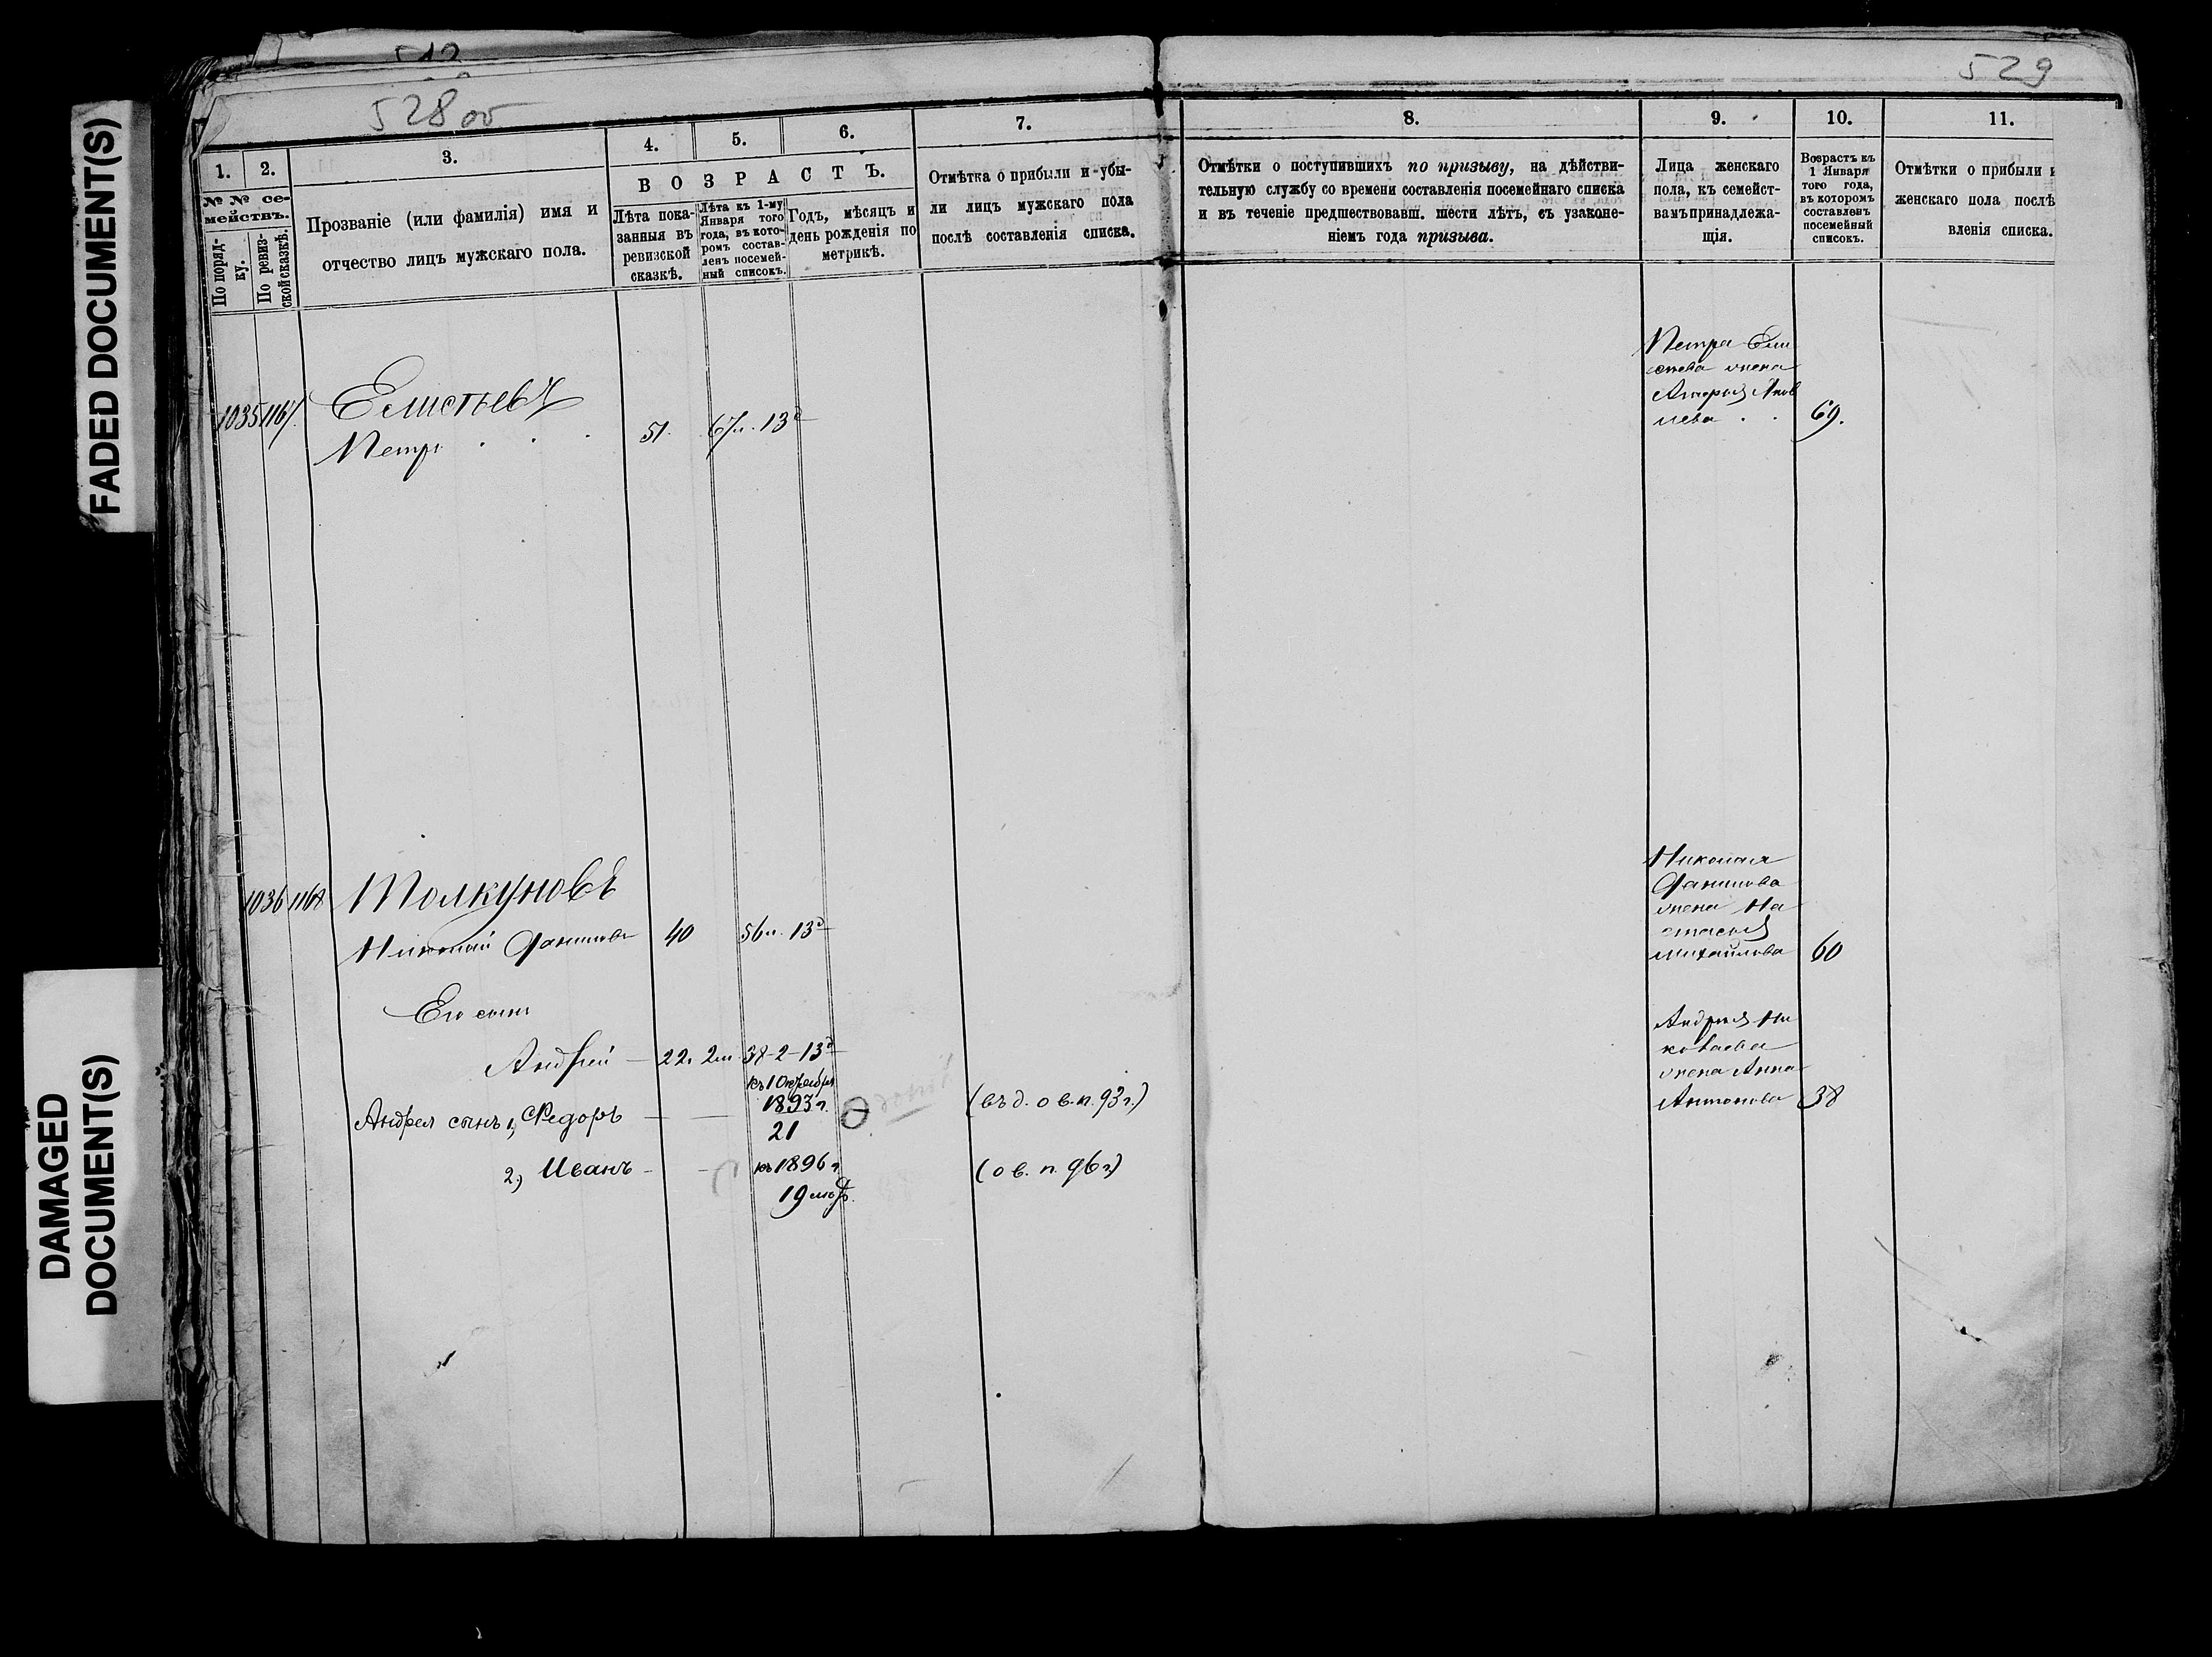 FADED DOCUMENT(S)
DAMAGED
DOCUMENT(S)
528 об
529
1.
2.
3.
4.
5.
6.
7.
8.
9.
10.
11.
№ № се-
мействъ.
По поряд-
ку.
По ревиз-
ской сказкѣ.
Прозваніе (или фамилія) имя и
отчество лицъ мужскаго пола.
ВОЗРАСТЪ.
Лѣта пока-
занныя въ
ревизской
сказкѣ.
Лѣта къ 1-му
Января того
года, въ кото-
ромъ состав-
ленъ посемей-
ный списокъ.
Годъ, мѣсяцъ и
день рожденія по
метрикѣ.
Отмѣтка о прибыли и убы-
ли лицъ мужскаго пола
послѣ составленія списка.
Отмѣтки о поступившихъ по призыву, на дѣйстви-
тельную службу со времени составленія посемейнаго списка
и въ теченіе предшествовавш. шести лѣтъ, съ узаконе-
ніемъ года призыва.
Лица женскаго
пола, къ семейст-
вамъ принадлежа-
щія.
Возрастъ къ
1 Января
того года,
въ которомъ
составленъ
посемейный
списокъ.
Отмѣтки о прибыли и
женскаго пола послѣ
вленія списка.
1035 1167. Елистьевъ
Петръ 51. 67л. 13д
Петра Ели
стьева жена
Яков
лева 69.
1036 1168 Толкуновъ
Николай Данилов 40 56л. 13д
Николая
Данилова
жена На
стасья
Михайлова 60
Его сынъ
Андрей 22. 2м. 38-2-13д
Андрея Ни
колаева
жена Анна
Антонова 38
Андрея сынъ 1, Федоръ
къ 1 Октября
1893 г.
21
(въ д. о в. п. 93 г.)
2, Иванъ
къ 1896 г
19
(о в. п. 96 г)